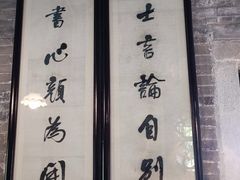 士言論自別
書心顏為